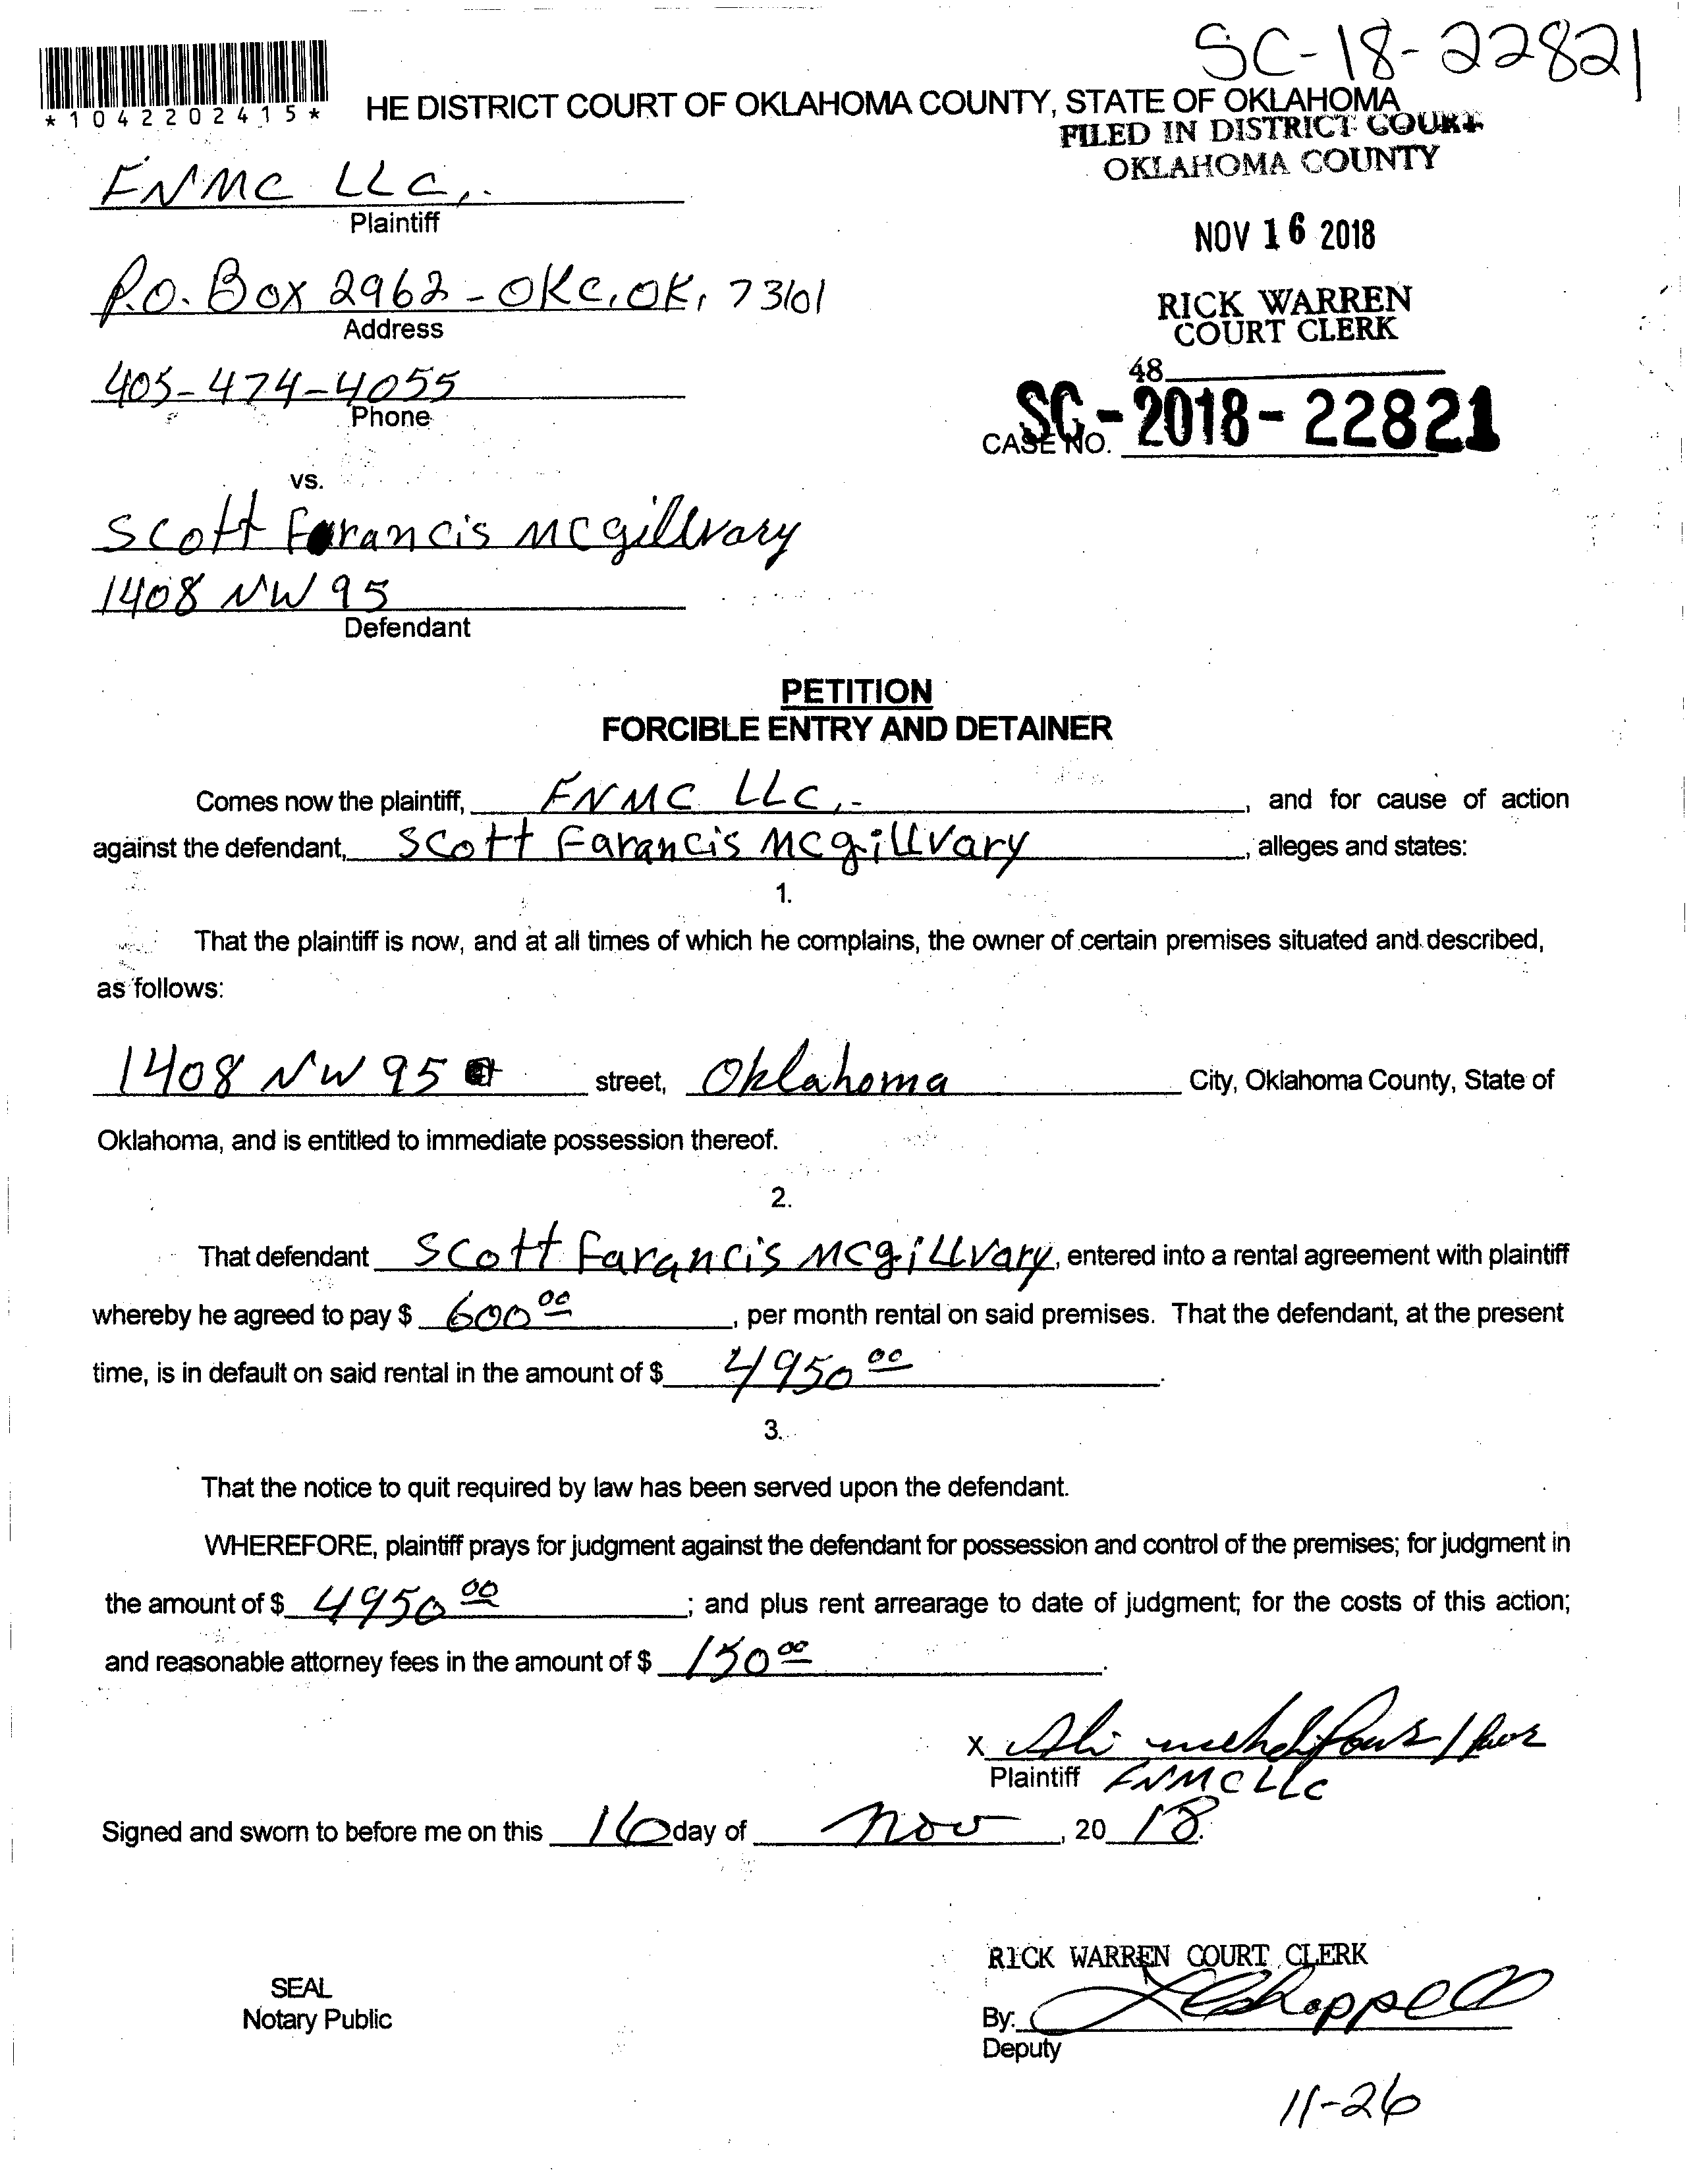 SC-18-22821
*1042202415*
HE DISTRICT COURT OF OKLAHOMA COUNTY, STATE OF OKLAHOMA
FILED IN DISTRICT COURT
OKLAHOMA COUNTY
FNMC LLC,.
Plaintiff
NOV 16 2018
P.O. Box 2962 - OKC, OK, 73101
Address
RICK WARREN
COURT CLERK
48
405-474-4055
Phone
CASE NO. SC-2018-22821
vs.
Scott Farancis Mcgillvary
1408 NW 95
Defendant
PETITION
FORCIBLE ENTRY AND DETAINER
Comes now the plaintiff, FNMC LLC,- , and for cause of action
against the defendant, Scott Farancis Mcgillvary , alleges and states:
1.
That the plaintiff is now, and at all times of which he complains, the owner of certain premises situated and described,
as follows:
1408 NW 95 street, Oklahoma City, Oklahoma County, State of
Oklahoma, and is entitled to immediate possession thereof.
2.
That defendant Scott Farancis Mcgillvary, entered into a rental agreement with plaintiff
whereby he agreed to pay $ 600 00 , per month rental on said premises. That the defendant, at the present
time, is in default on said rental in the amount of $ 4950 00 .
3.
That the notice to quit required by law has been served upon the defendant.
WHEREFORE, plaintiff prays for judgment against the defendant for possession and control of the premises; for judgment in
the amount of $ 4950 00 ; and plus rent arrearage to date of judgment; for the costs of this action;
and reasonable attorney fees in the amount of $ 150 00 .
x Ali
Plaintiff FNMC LLC
Signed and sworn to before me on this 16 day of Nov , 20 18.
RICK WARREN COURT CLERK
SEAL
Notary Public
By:
Deputy
11-26